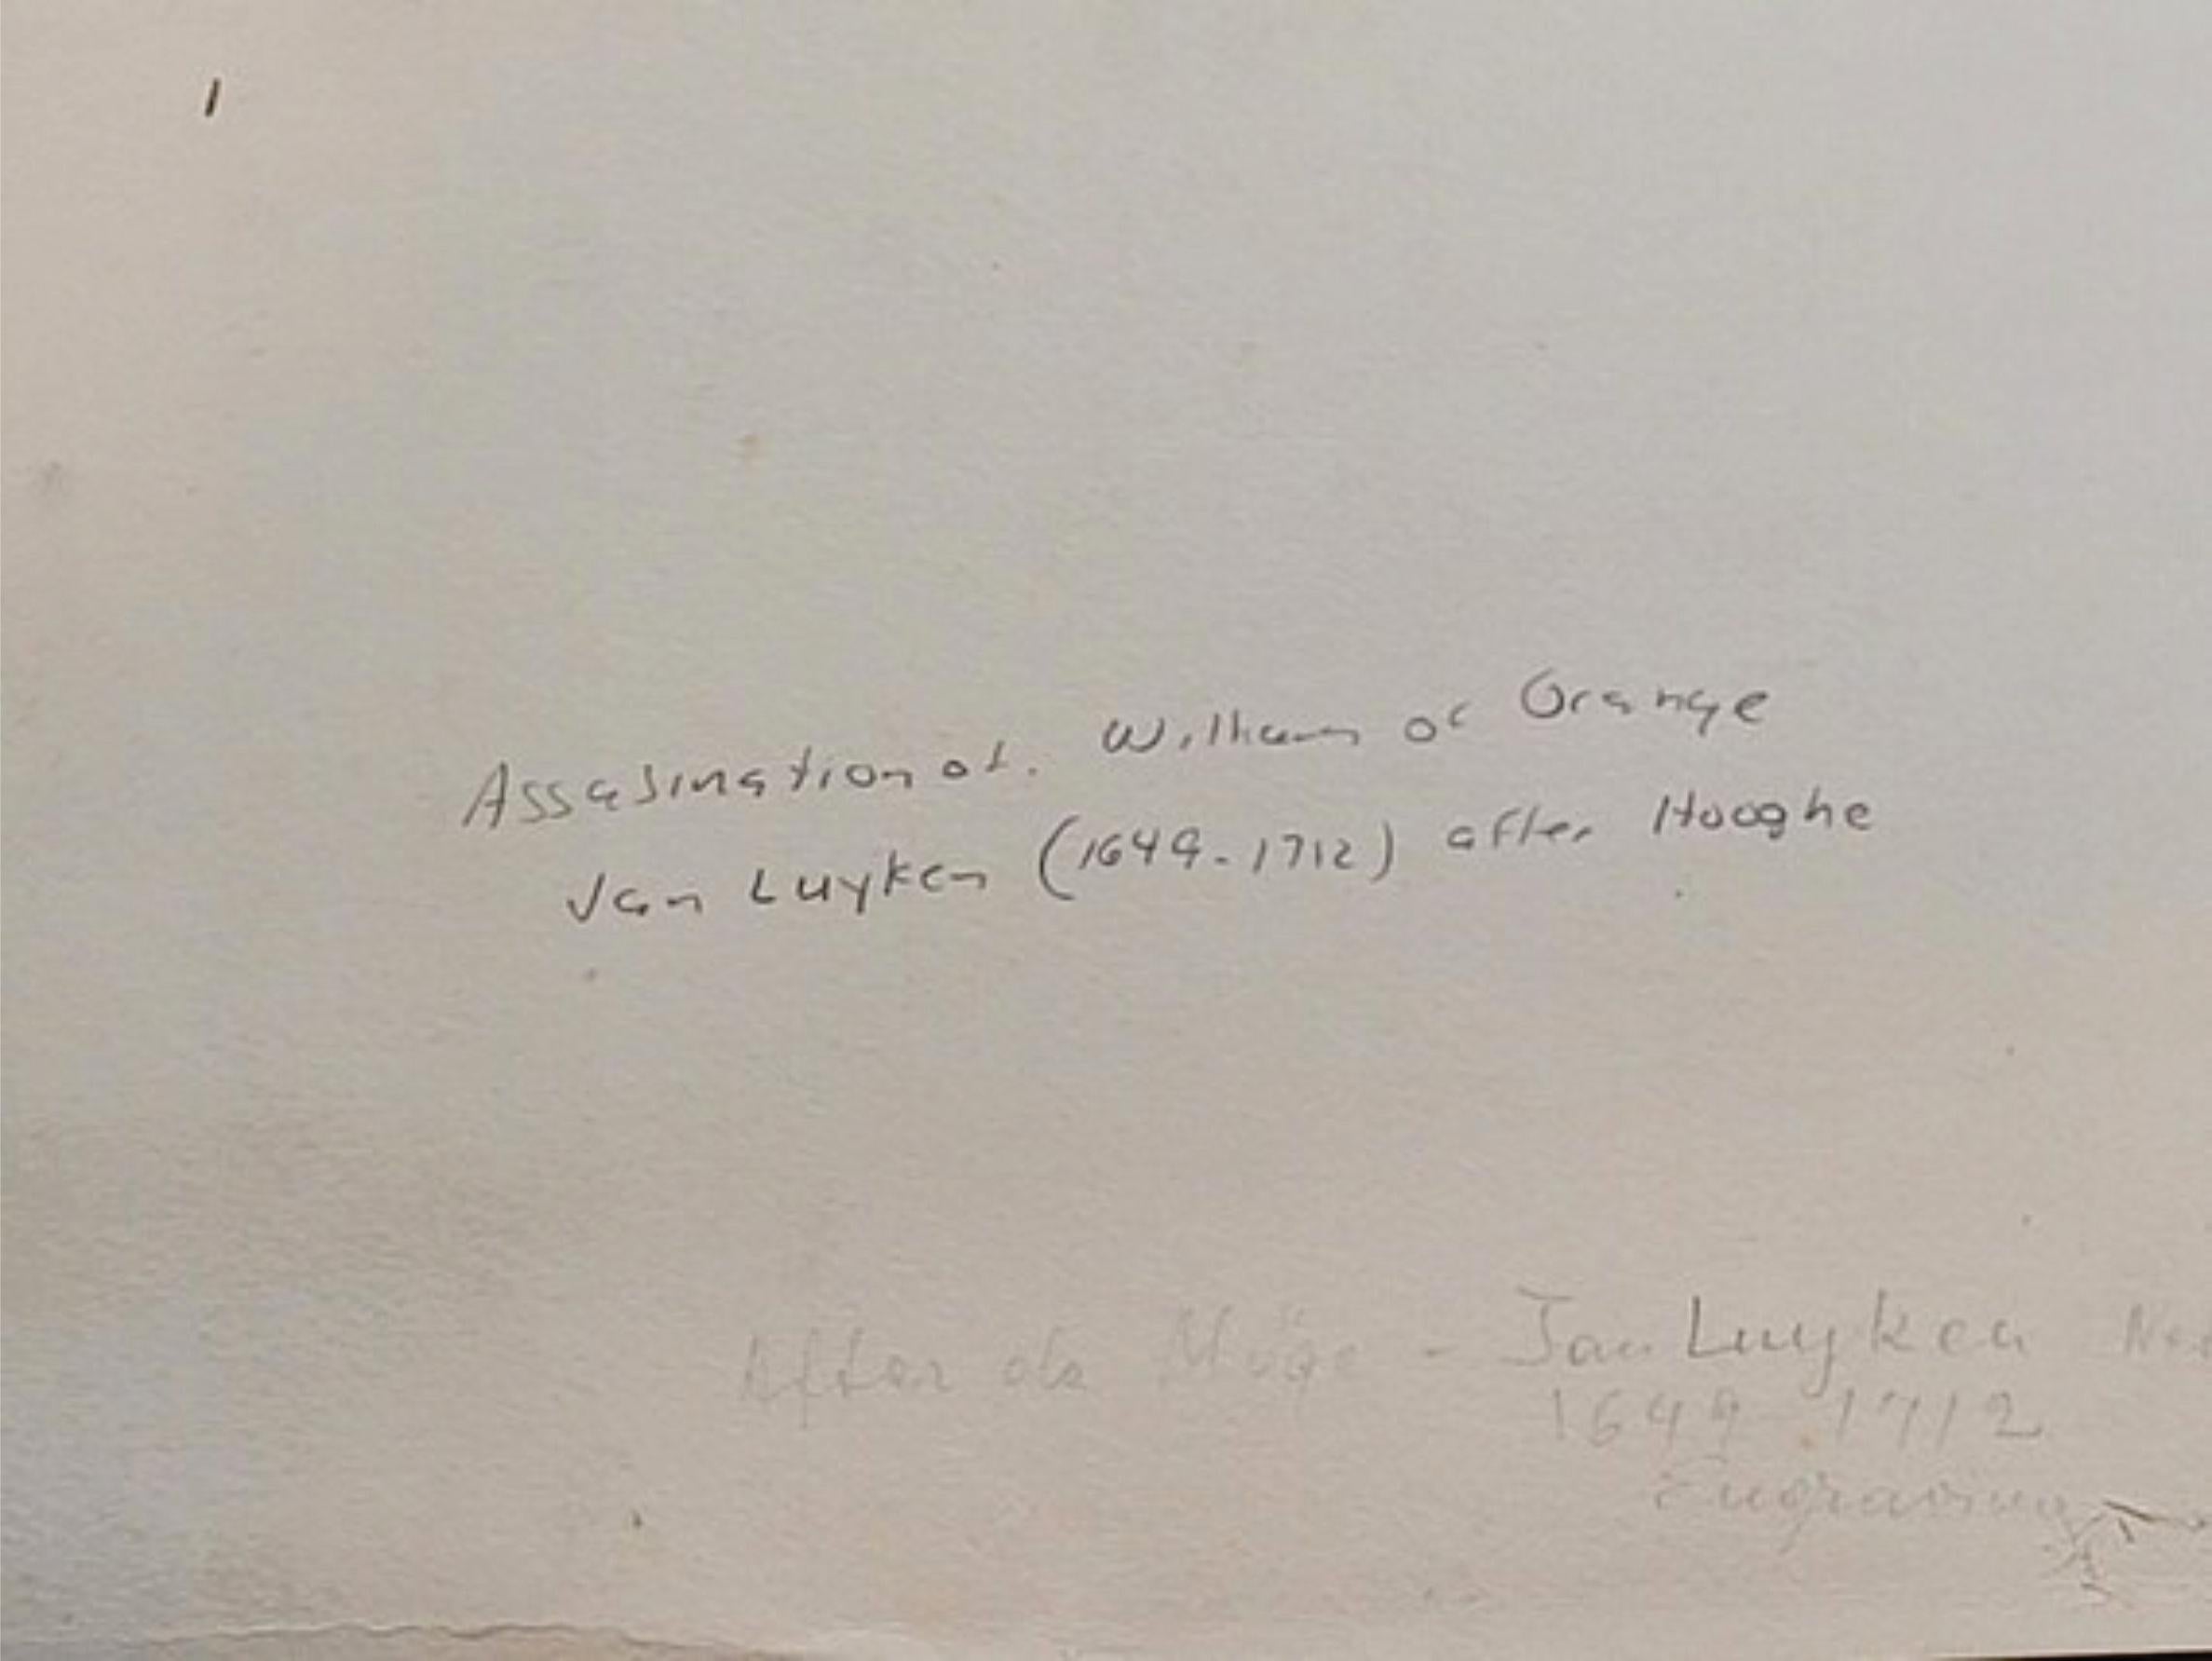 1
Assasination of. William of Orange
Jan Luyken (1649-1712) after Hooghe
After de Höge - Jan Luyken
1649-1712
Engraving